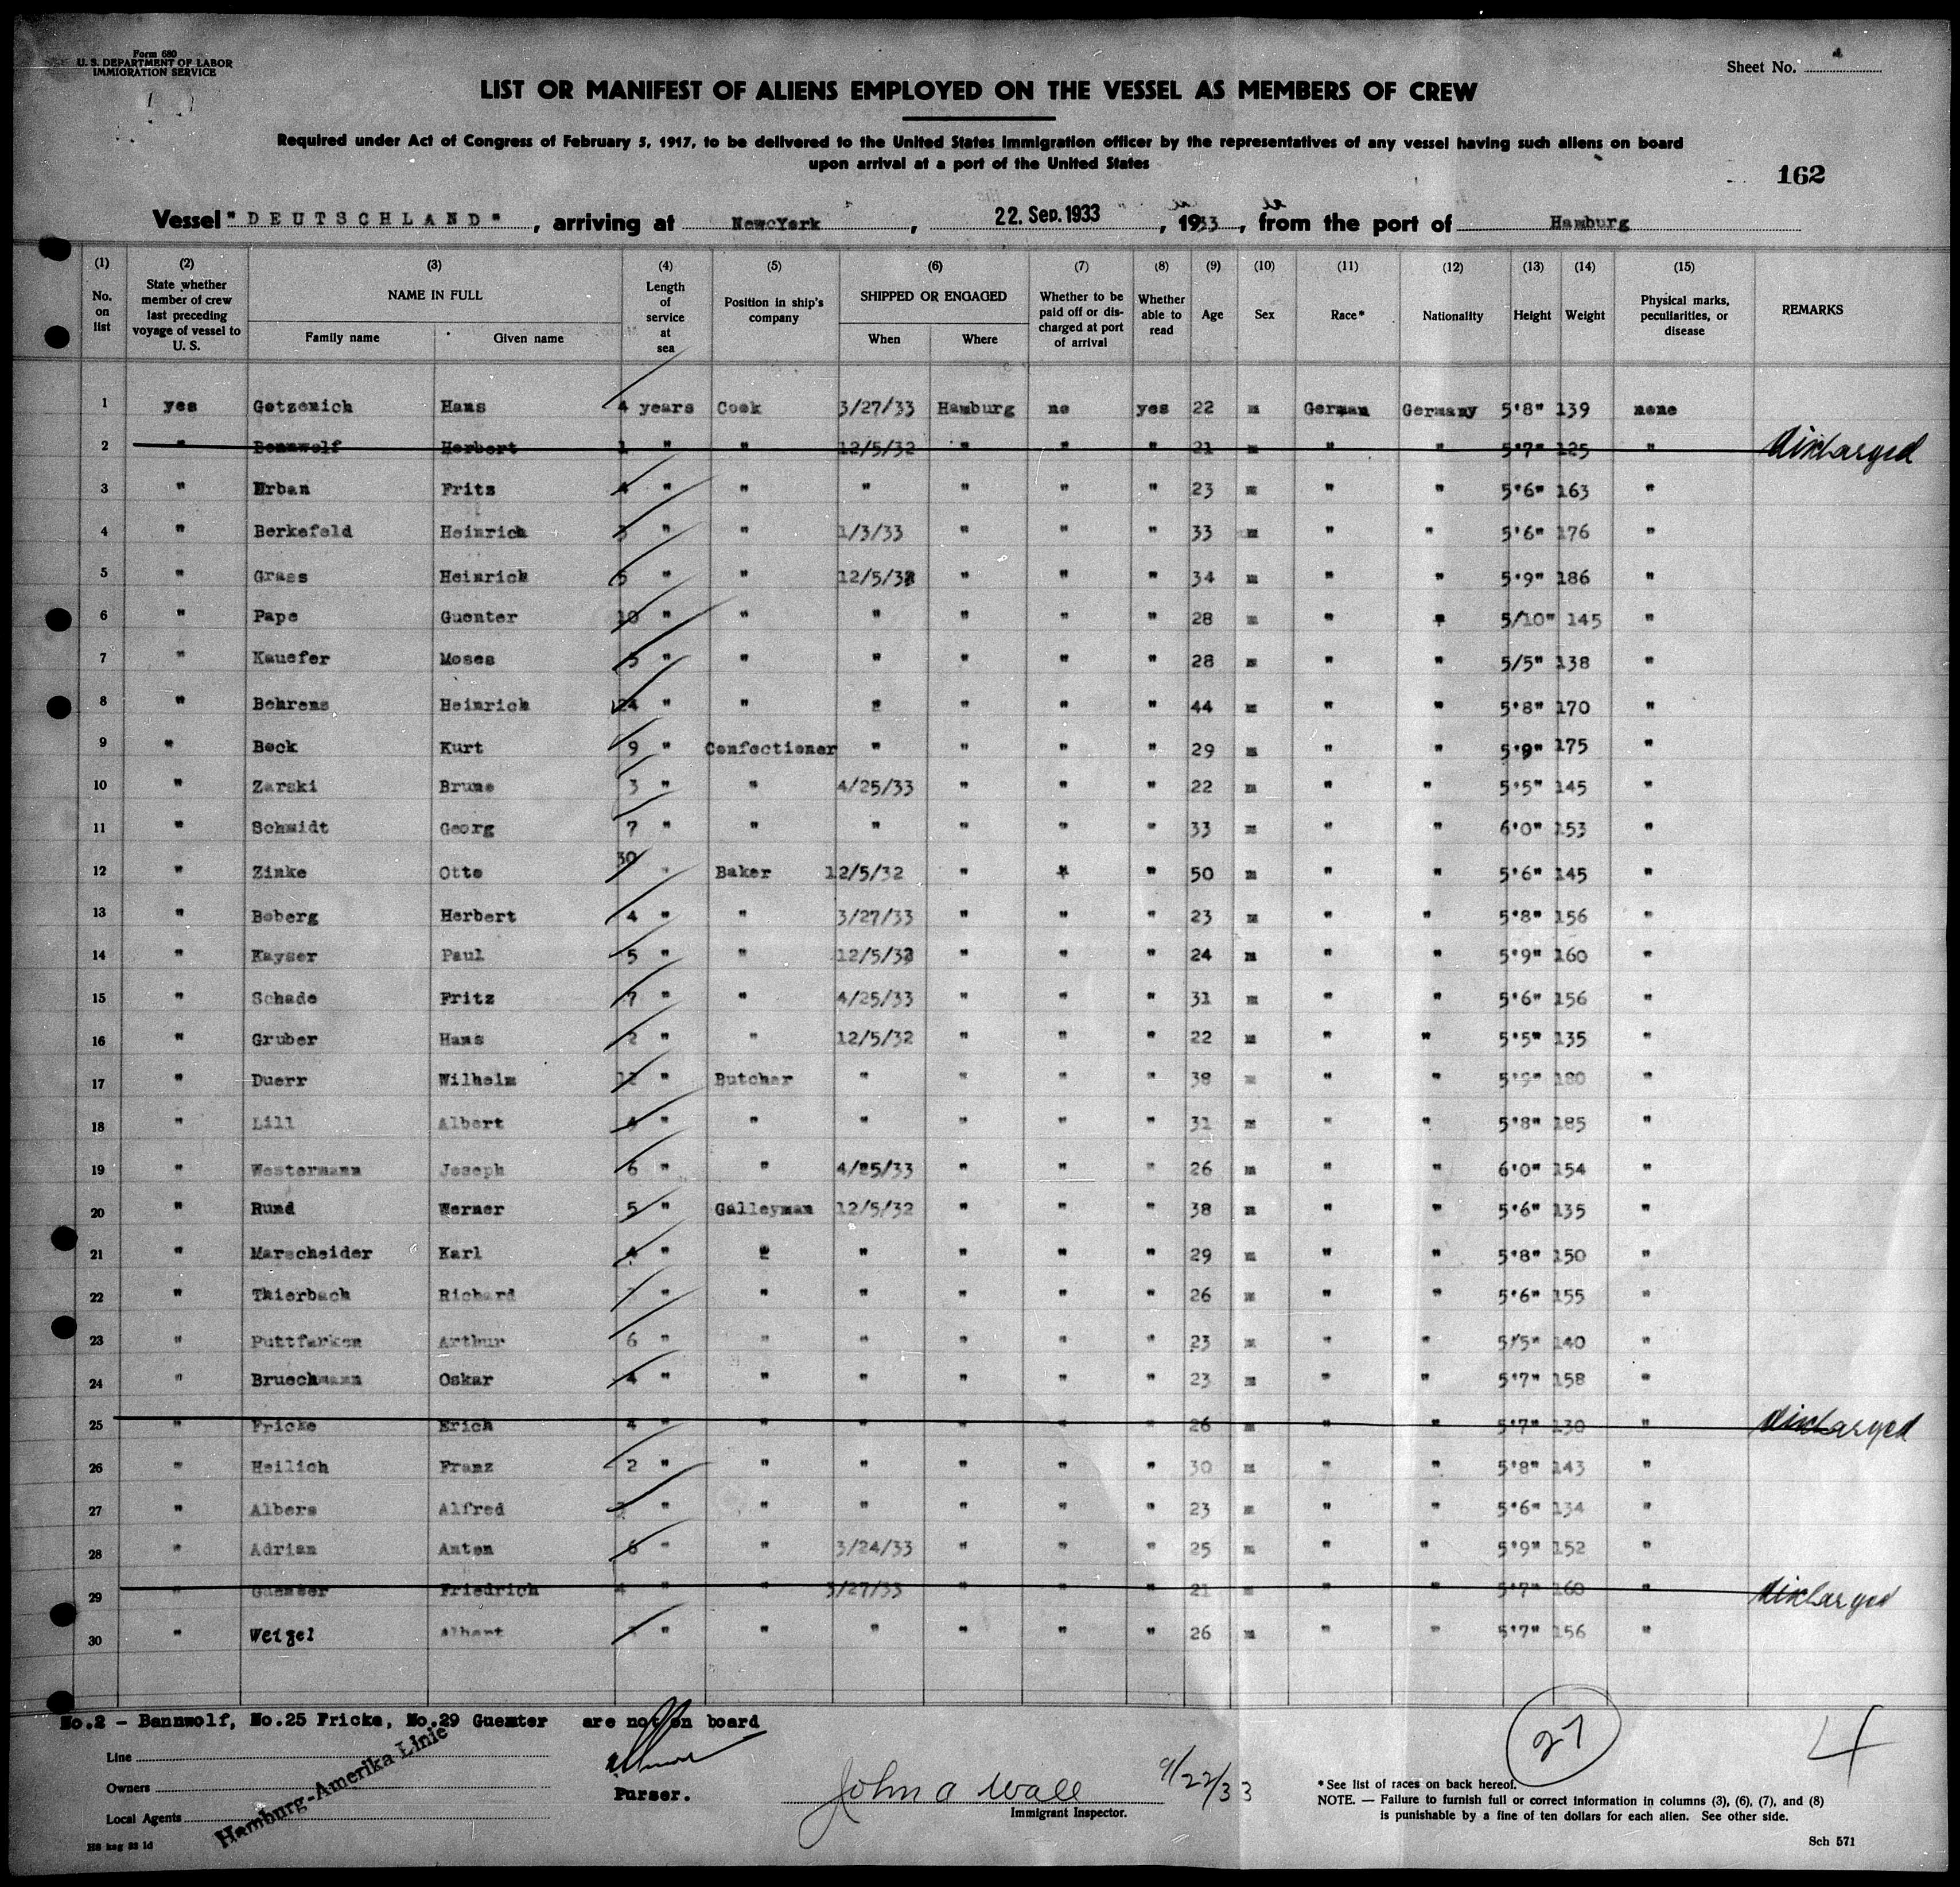 Form 680
U. S. DEPARTMENT OF LABOR
IMMIGRATION SERVICE
Sheet No. 4
LIST OR MANIFEST OF ALIENS EMPLOYED ON THE VESSEL AS MEMBERS OF CREW
Required under Act of Congress of February 5, 1917, to be delivered to the United States Immigration officer by the representatives of any vessel having such aliens on board
upon arrival at a port of the United States
162
Vessel "DEUTSCHLAND", arriving at New York, 22. Sep. 1933, 1933, from the port of Hamburg
(1) (2) (3) (4) (5) (6) (7) (8) (9) (10) (11) (12) (13) (14) (15)
No. on list
State whether member of crew last preceding voyage of vessel to U. S.
NAME IN FULL
Family name
Given name
Length of service at sea
Position in ship's company
SHIPPED OR ENGAGED
When
Where
Whether to be paid off or discharged at port of arrival
Whether able to read
Age
Sex
Race*
Nationality
Height
Weight
Physical marks, peculiarities, or disease
REMARKS
1 yes Getzenich Hans 4 years Cook 3/27/33 Hamburg no yes 22 m German Germany 5'8" 139 none
2 " Bannwolf Herbert 1 " " 12/5/32 " " " 21 m " " 5'7" 125 " discharged
3 " Urban Fritz 4 " " " " " " 23 m " " 5'6" 163 "
4 " Berkefeld Heinrich 3 " " 1/3/33 " " " 33 m " " 5'6" 176 "
5 " Grass Heinrich 5 " " 12/5/32 " " " 34 m " " 5'9" 186 "
6 " Pape Guenter 10 " " " " " " 28 m " " 5/10" 145 "
7 " Kauefer Moses 5 " " " " " " 28 m " " 5/5" 138 "
8 " Behrens Heinrich 24 " " " " " " 44 m " " 5'8" 170 "
9 " Beck Kurt 9 " Confectioner " " " " 29 m " " 5'9" 175 "
10 " Zarski Bruno 3 " " 4/25/33 " " " 22 m " " 5'5" 145 "
11 " Schmidt Georg 7 " " " " " " 33 m " " 6'0" 153 "
12 " Zinke Otto 30 " Baker 12/5/32 " " " 50 m " " 5'6" 145 "
13 " Boberg Herbert 4 " " 3/27/33 " " " 23 m " " 5'8" 156 "
14 " Kayser Paul 5 " " 12/5/32 " " " 24 m " " 5'9" 160 "
15 " Schade Fritz 7 " " 4/25/33 " " " 31 m " " 5'6" 156 "
16 " Gruber Hans 2 " " 12/5/32 " " " 22 m " " 5'5" 135 "
17 " Duerr Wilhelm " Butcher " " " " 38 m " " 5'9" 180 "
18 " Lill Albert 4 " " " " " " 31 m " " 5'8" 185 "
19 " Westermann Joseph 6 " " 4/25/33 " " " 26 m " " 6'0" 154 "
20 " Rund Werner 5 " Galleyman 12/5/32 " " " 38 m " " 5'6" 135 "
21 " Marscheider Karl 4 " " " " " " 29 m " " 5'8" 150 "
22 " Thierbach Richard " " " " " " 26 m " " 5'6" 155 "
23 " Puttfarken Arthur 6 " " " " " " 23 m " " 5/5" 140 "
24 " Bruechmann Oskar 4 " " " " " " 23 m " " 5'7" 158 "
25 " Fricke Erich 4 " " " " " " 26 m " " 5'7" 130 " discharged
26 " Heilich Franz 2 " " " " " " 30 m " " 5'8" 143 "
27 " Albers Alfred " " " " " " 23 m " " 5'6" 134 "
28 " Adrian Anton 6 " " 3/24/33 " " " 25 m " " 5'9" 152 "
29 " Guenter Friedrich 4 " " 3/27/33 " " " 21 m " " 5'7" 160 " discharged
30 " Weigel Albert " " " " " " 26 m " " 5'7" 156 "
No.2 - Bannwolf, No.25 Fricke, No.29 Guenter are not on board
27
4
Line
Owners
Local Agents
Hamburg-Amerika Linie
Purser.
John A Wall 9/22/33
Immigrant Inspector.
*See list of races on back hereof.
NOTE. — Failure to furnish full or correct information in columns (3), (6), (7), and (8)
is punishable by a fine of ten dollars for each alien. See other side.
Sch 571